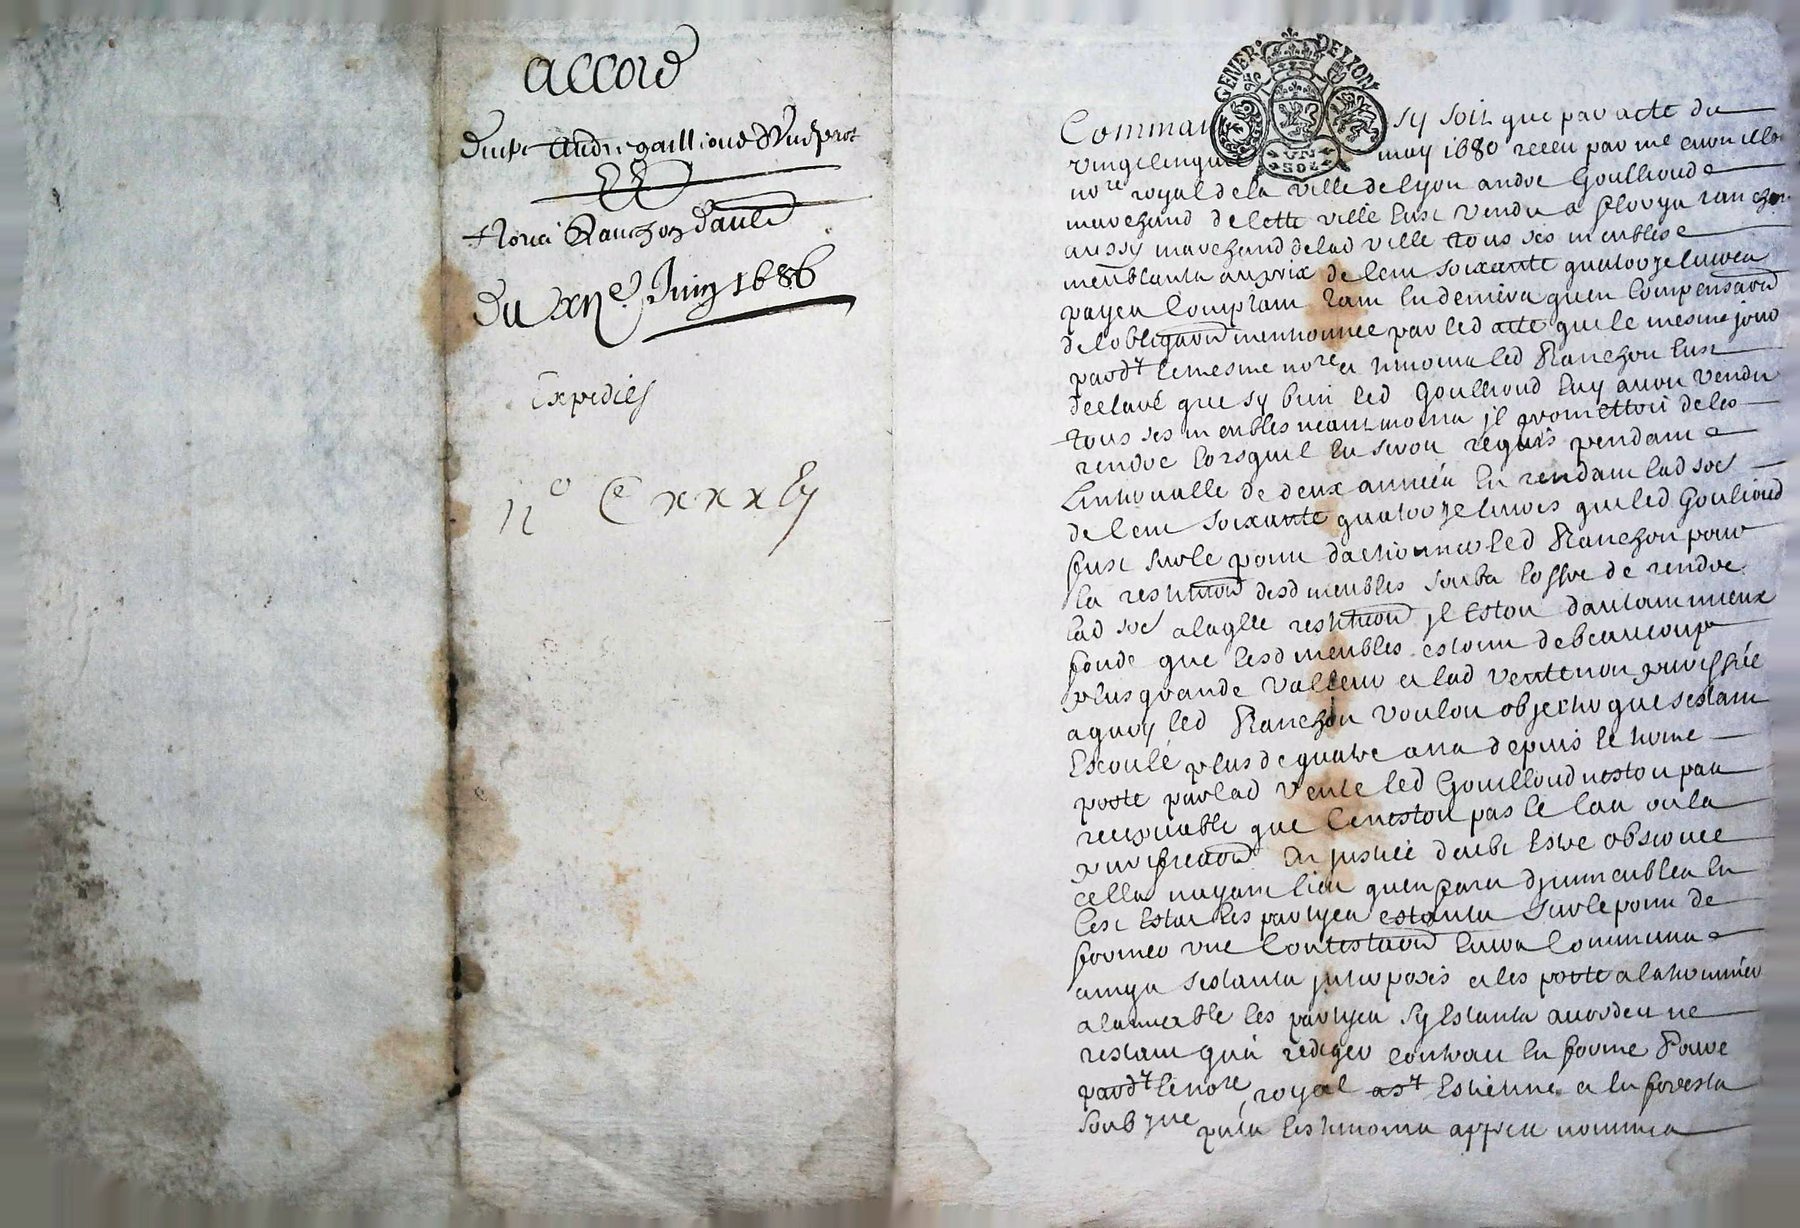 accord
Entre André gaillioud d'Une part
Floris Ranchon dautre
Du XIIe. Juin 1686
Expediés
no Cxxxiiij
GENER. DE LYON
UN SOL
Comme ainsy soit que par acte du
vingtcinquie may 1680 receu par me
nore royal de la ville de lyon andre Goullioud
marchand de cette ville eust vendu a floris ranchon
aussy marchand de lad ville tous ses meubles
meublants au prix de cent soixante quatorze livres
payes comptant tant en deniers quen compensaon
de lobligaon mentionnee par led acte que le mesme jour
pardt le mesme nore et tmoins led Ranchon eust
declaré que sy bien led Goullioud luy avoit vendu
tous ses meubles neantmoins jl promettoit de les
rendre lorsquil en seroit requis pendant
lintervalle de deux années en rendant lad soe
de cent soixante quatorze livres que led Goulioud
fust sur le point dactionner led Ranchon pour
la restituon desd meubles soubs loffre de rendre
lad soe a laqlle restituon jl estoit dautant mieux
fondé que lesd meubles estoint de beaucoup
plus grande valleur et lad vente non
a quoy led Ranchon vouloit objecter que sestant
escoulé plus de quatre ans depuis le terme
porté par lad vente led Gouilloud nestoit pas
recevable que ce nestoit pas le cas ou la
en justice deubt estre observee
cella nayant lieu quen faict djmmeubles en
cest estat les partyes estants sur le point de
former une contestaon leurs communs
amys sestants jnterposés et les porté a la terminer
a lamiable les partyes sy estants accordes ne
restant qua rediger contrat en forme Pour ce
pardt le nore royal a st Estienne et en forests
soubzne puis les tmoins appres nommes